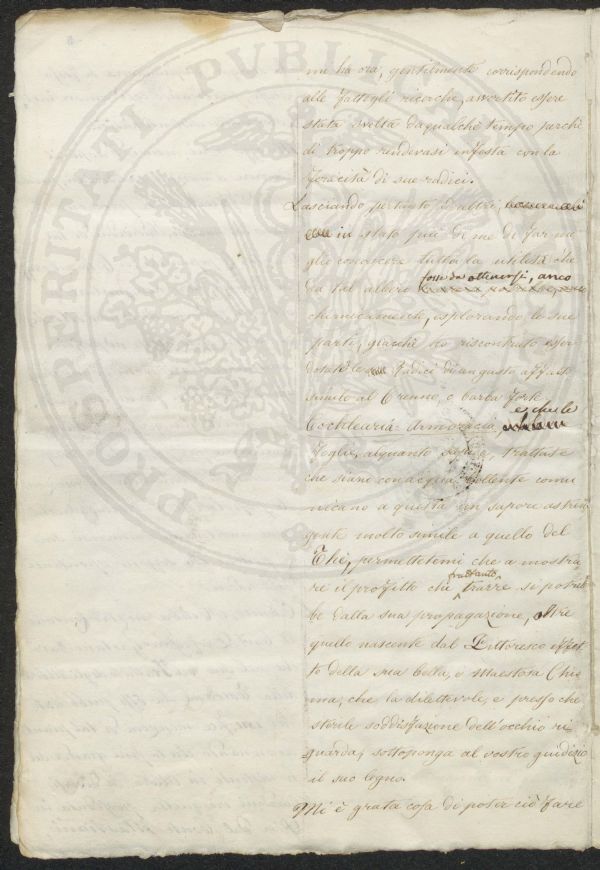 me ha ora, gentilmente corrispondendo
alle fattegli ricerche, avvertito essere
stata svelta da qualche tempo perchè
di troppo rendevasi infesta con la
feracità di sue radici.
Lasciando pertanto ad altri,
in stato più di me di far me
glio conoscere tutta la utilità che
da tal albero fosse da ottenersi, anco
chimicamente, esplorando le sue
parti, giacchè ho riscontrato esser
dotate le Radici di un gusto affatto
simile al Crenno, o barba forte
Cochlearia Armoracia, e che le
foglie, alquanto, trattate
che siano con acqua bollente comu
nicano a questa un sapore astrin
gente molto simile a quello del
Thè, permettetemi che a mostra
re il profitto che frattanto trarre si potreb
be dalla sua propagazione, oltre
quello nascente dal Pittoresco effet
to della sua bella, e Maestosa Chio
ma, che la dilettevole, e presso che
sterile soddisfazione dell'occhio ri
guarda, sottoponga al vostro giudizio
il suo legno.
Mi è grata cosa di poter ciò fare
PROSPERITATI PVBLIC